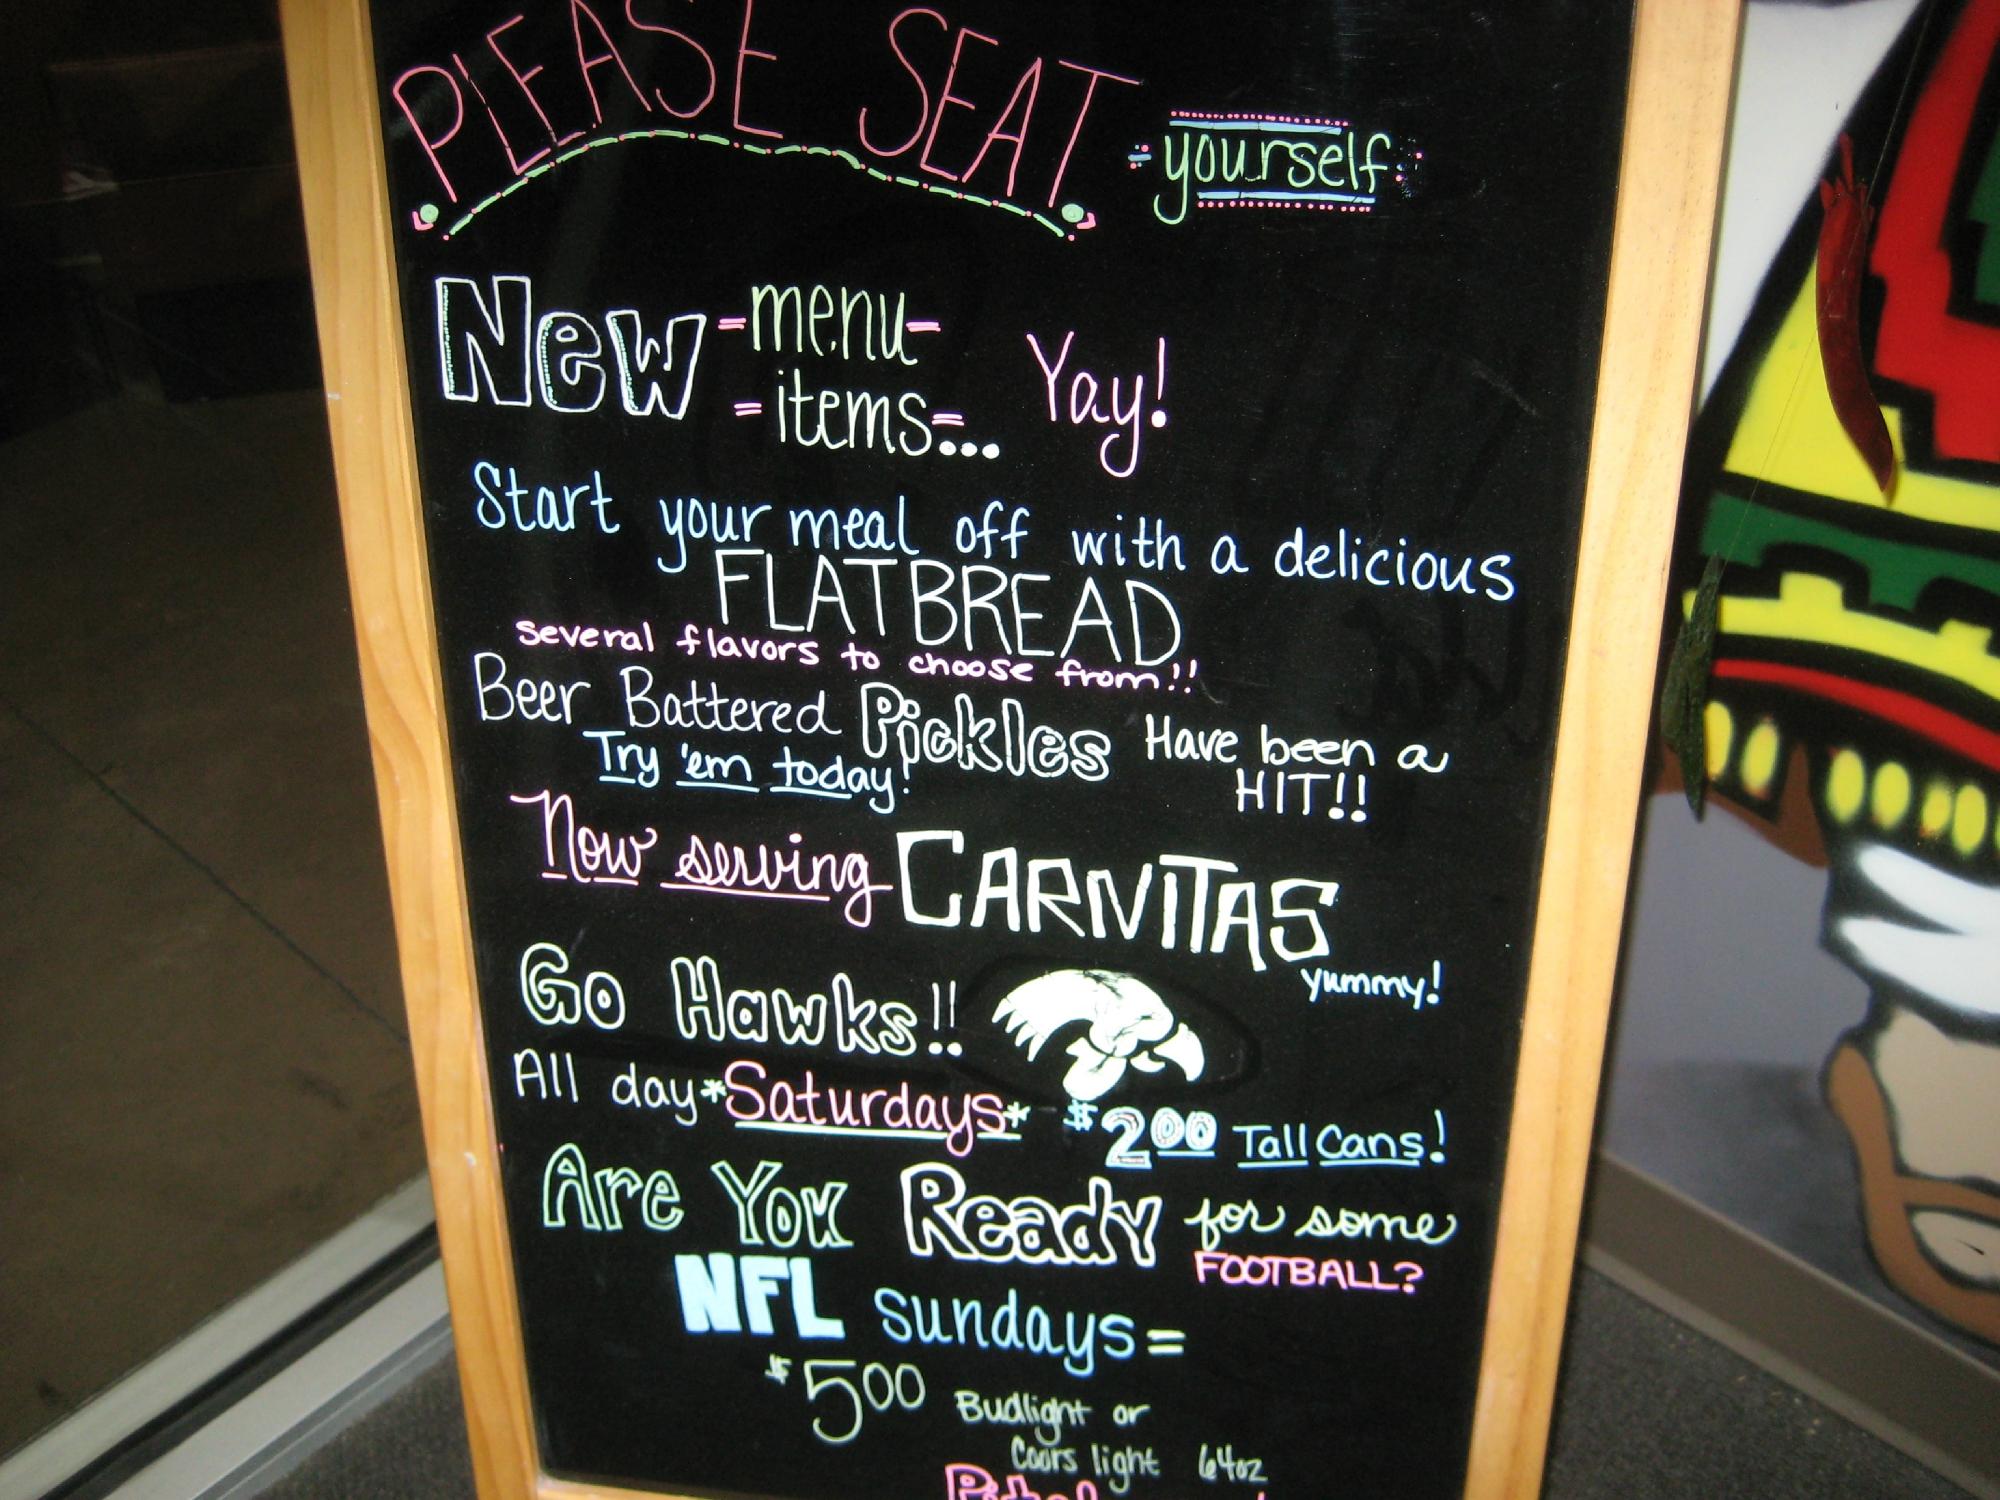 PLEASE SEAT yourself
New -menu- Yay!
=items=...
Start your meal off with a delicious
FLATBREAD
several flavors to choose from!!
Beer Battered Pickles Have been a
Try 'em today! HIT!!
Now serving CARNITAS
yummy!
Go Hawks!!
All day *Saturdays* $2.00 Tall Cans!
Are You Ready for some
FOOTBALL?
NFL sundays =
$5.00 Budlight or
Coors light 64oz